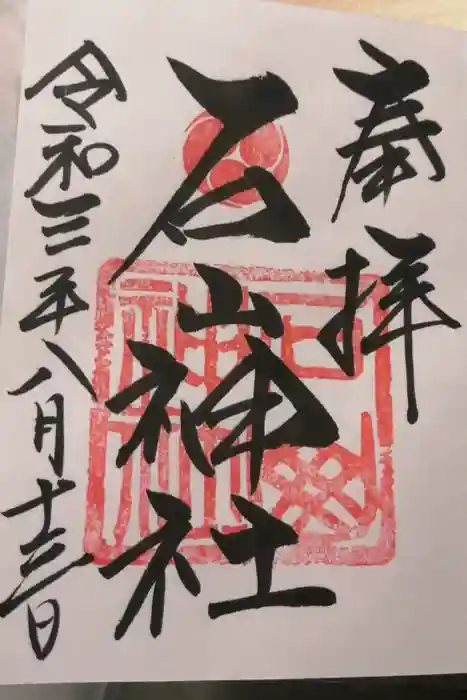 奉拝
石山神社
令和三年八月十三日